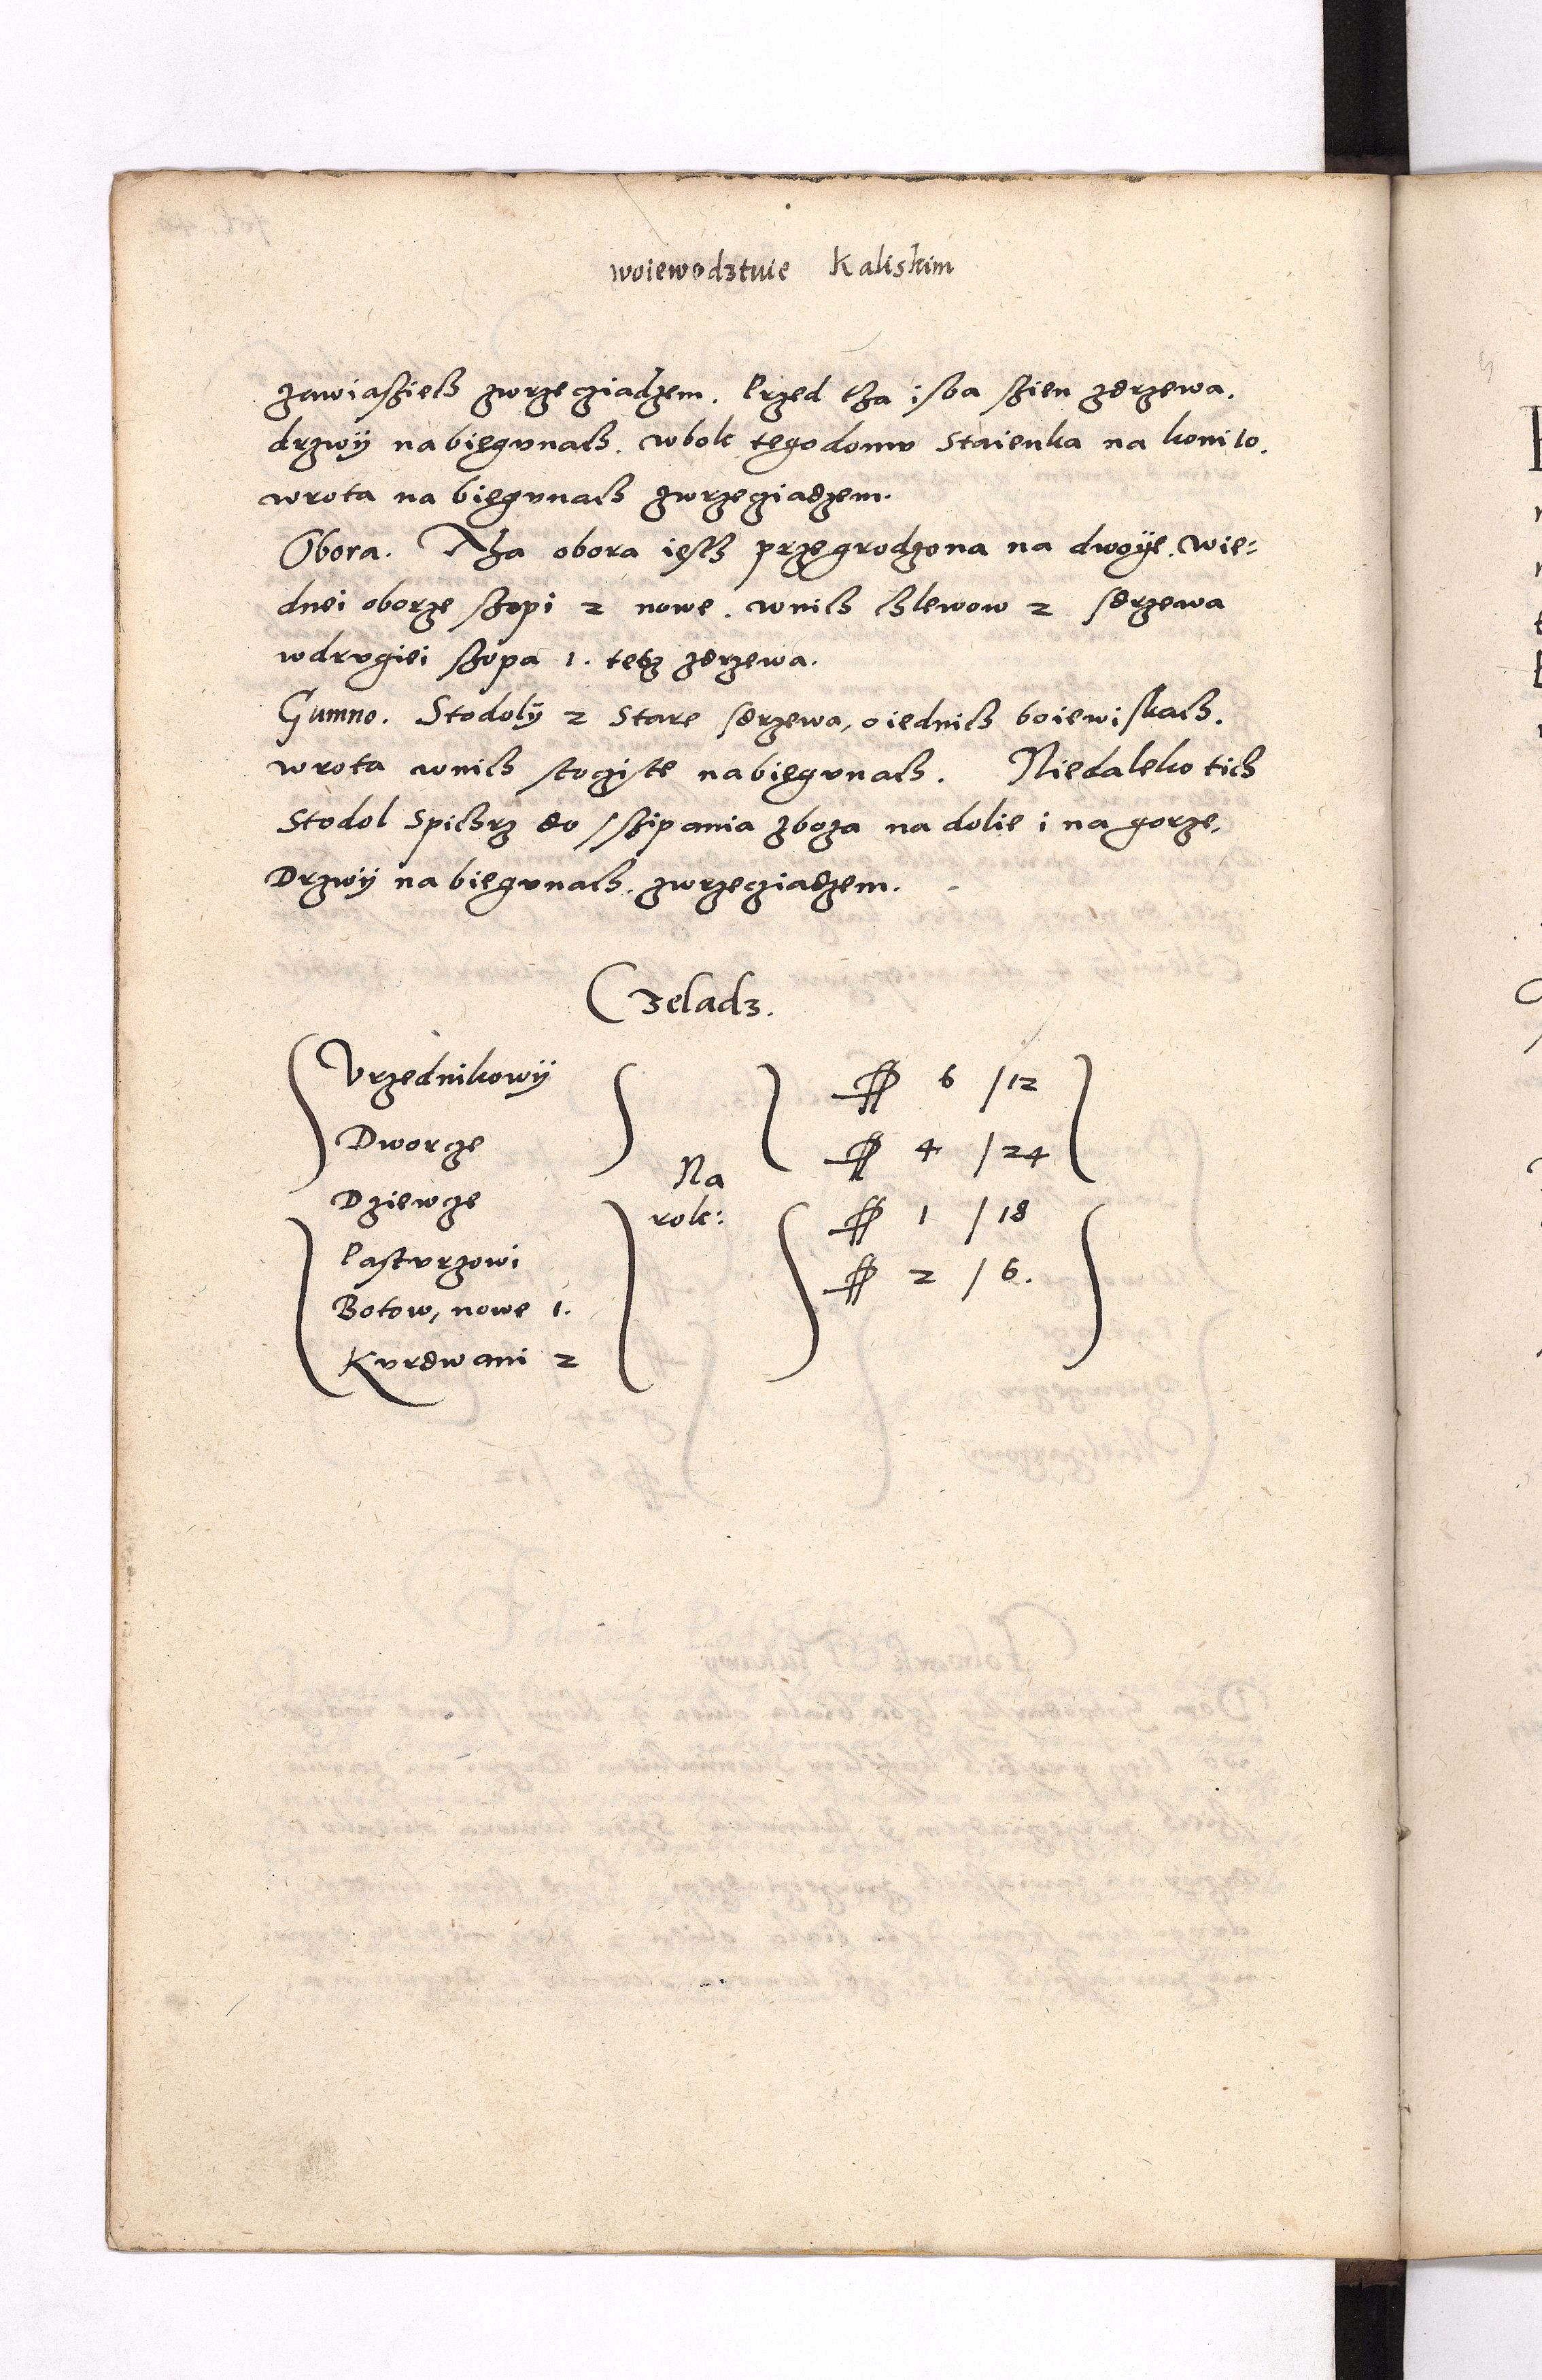 woiewodztwie Kaliskim
zawiaszich zwrzecziadzem. Przed tha isba szien zdrzewa.
drzwÿ nabiegunach. wbok tegodomu Staienka na koni 10.
wrota na biegunach zwrzecziadzem.
Obora. Tha obora iesth przegrodzona na dwoÿe. wie=
dnei oborze szopi 2 nowe. wnich chlewow 2 sdrzewa
wdrugiei szopa 1. tesz zdrzewa.
Gumno. Stodolÿ 2 Stare sdrzewa, oiednich boiewiskach.
wrota wnich stogiste nabiegunach. Niedaleko tich
Stodol Spichrz do sszipania zboza na dolie i na gorze,
Drzwÿ na biegunach. zwrzecziadzem.
Czeladz.
Vrzednikowÿ 6 /12
Dworze 4 /24
Na
Dziewcze rok: 1 /18
Pasturzowi 2 /6.
Botow, nowe 1.
Kurdwani 2